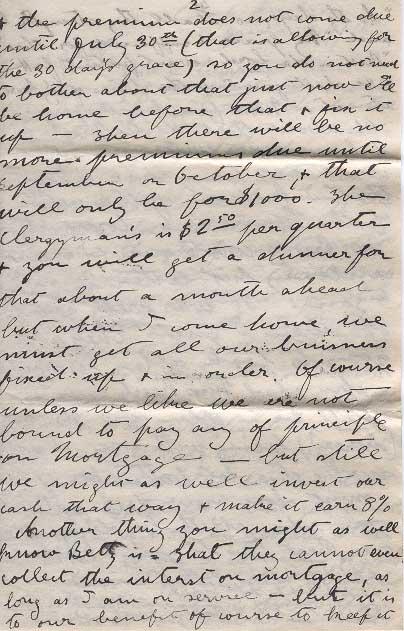 2
+ the premium does not come due
until July 30th (that is allowing for
the 30 days grace) so you do not need
to bother about that just now I'll
be home before that + fix it
up — Then there will be no
more premiums due until
September or October, + that
will only be for $1000. The
Clergyman's is $2.50 per quarter
+ you will get a dunner for
that about a month ahead
but when I come home, we
must get all our business
fixed up + in order. Of course
unless we like we are not
bound to pay any of principle
on Mortgage — but still
we might as well invest our
cash that way + make it earn 8%
Another thing you might as well
know Betty is - that they cannot even
collect the interst on mortgage, as
long as I am on service — but it is
to our benefit of course to keep it